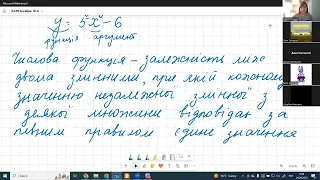 y = 5x² - 6
функція аргумент
Числова функція - залежність між
двома змінними, при якій кожному
значенню незалежної змінної з
деякої множини відповідає за
певним правилом єдине значення